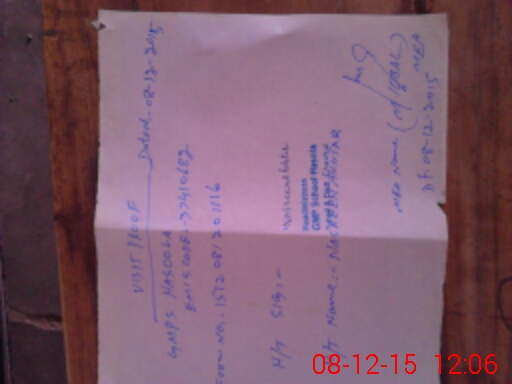 VISIT PROOF
Dated-08-12-2015
GMPS HASCOLA
EMIS CODE:-37410682
Form No. 1512081201116
H/T SIG:-
Headmistress
GMP School Hascola
H/T Name:-
MEA Name (M IQBAL)
MEA
Dt 08-12-2015
08-12-15 12:06